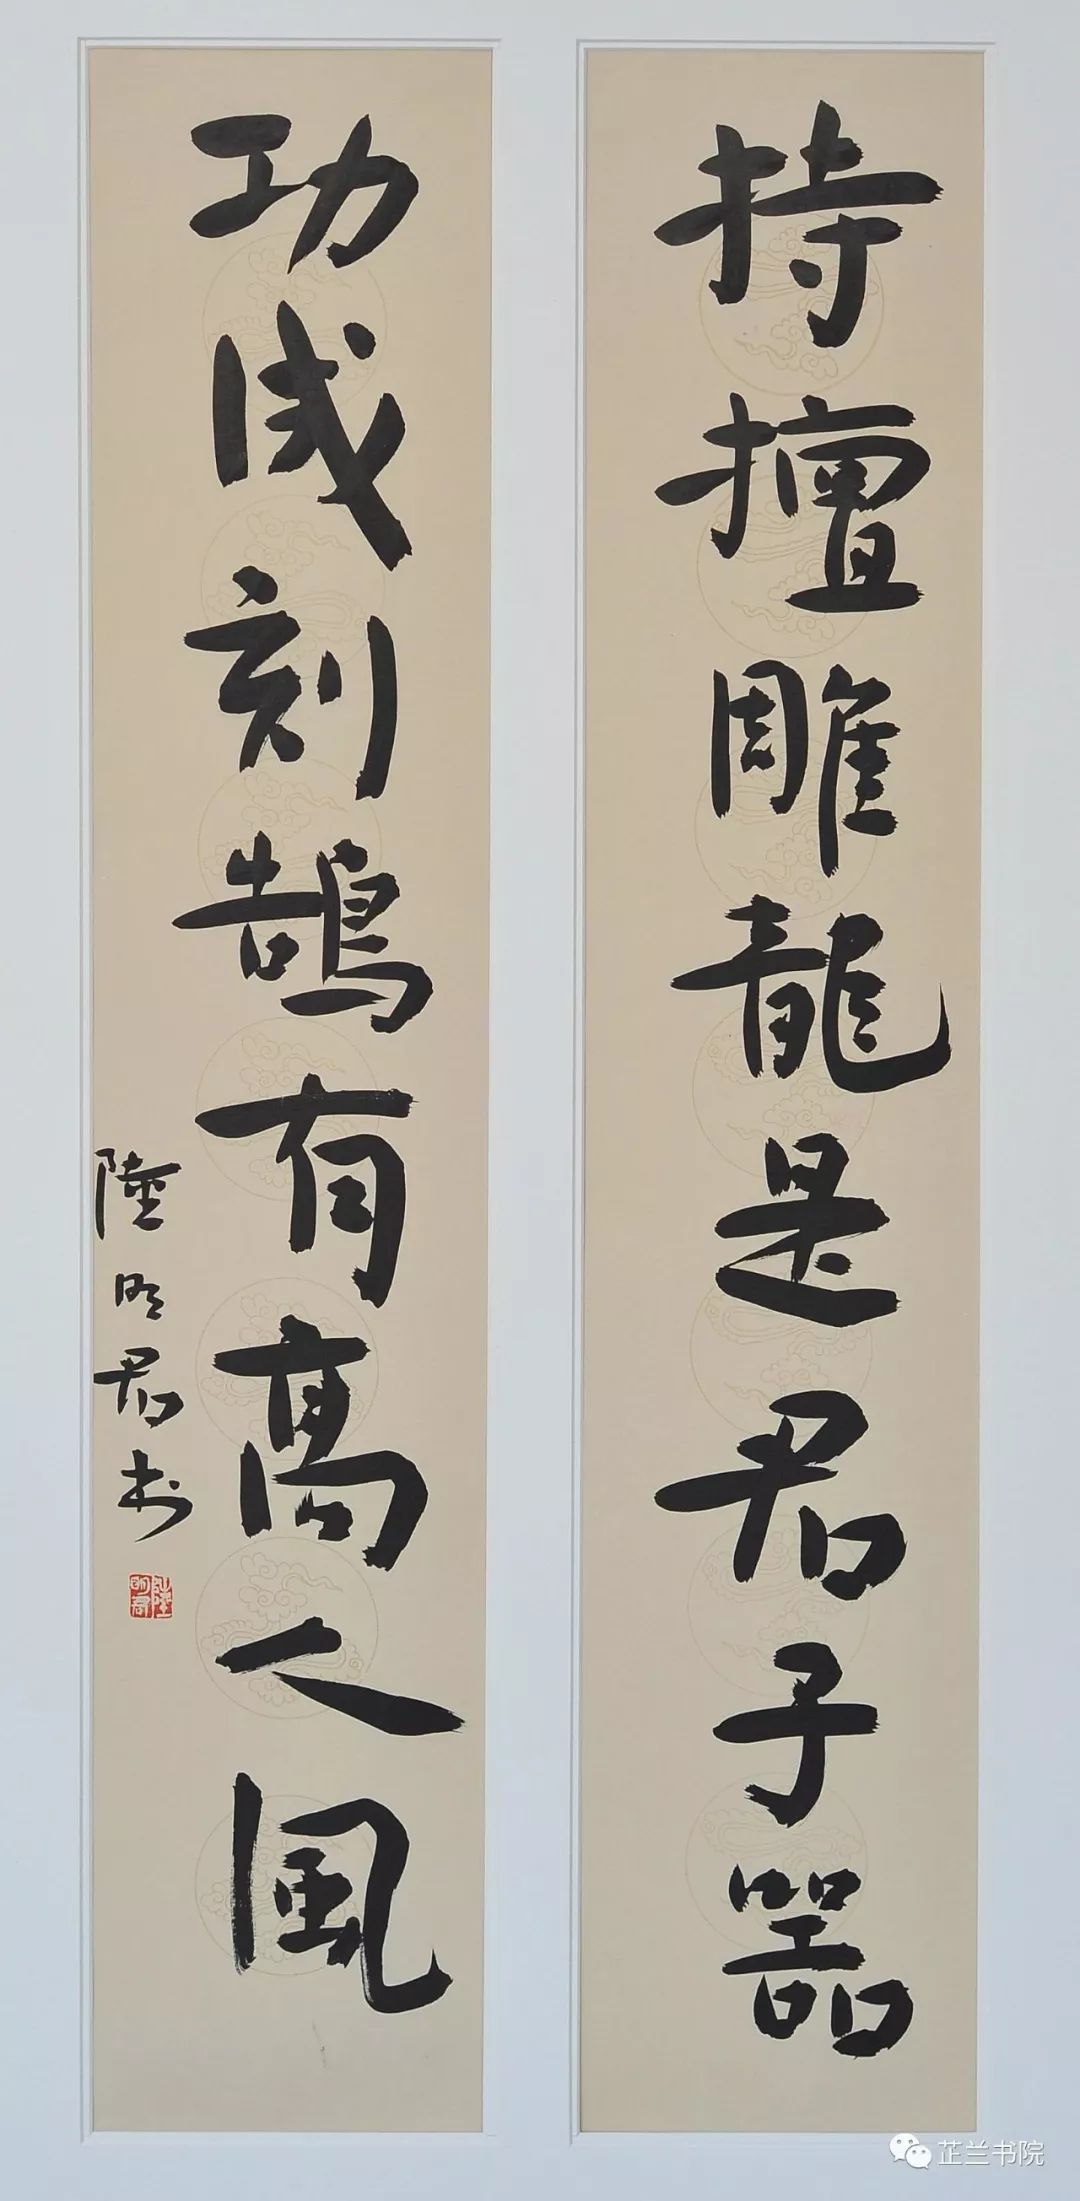 持擅雕龍是君子器
功成刻鵠有高人風
陸明君书
陸明君
芷兰书院